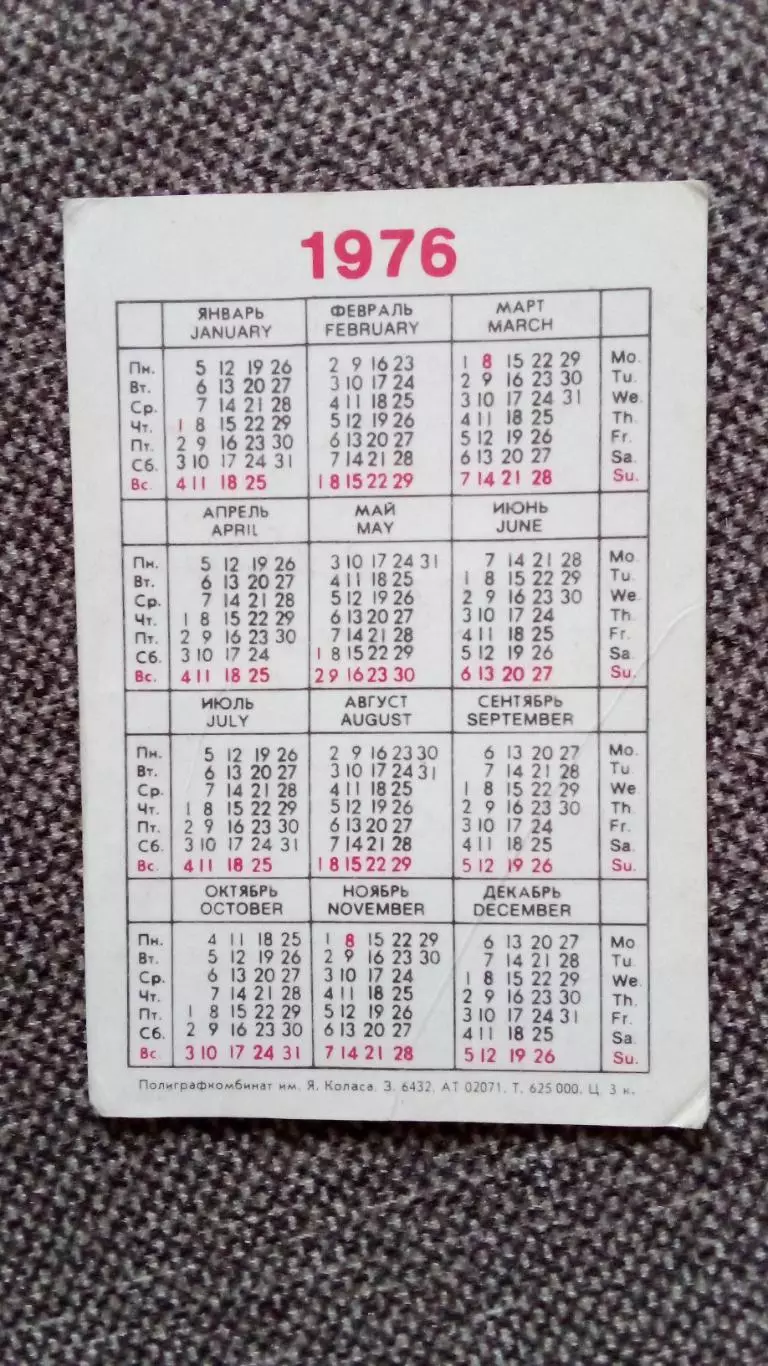 1976
ЯНВАРЬ ФЕВРАЛЬ МАРТ
JANUARY FEBRUARY MARCH
Пн. 5 12 19 26 2 9 16 23 1 8 15 22 29 Mo.
Вт. 6 13 20 27 3 10 17 24 2 9 16 23 30 Tu.
Ср. 7 14 21 28 4 11 18 25 3 10 17 24 31 We.
Чт. 1 8 15 22 29 5 12 19 26 4 11 18 25 Th.
Пт. 2 9 16 23 30 6 13 20 27 5 12 19 26 Fr.
Сб. 3 10 17 24 31 7 14 21 28 6 13 20 27 Sa.
Вс. 4 11 18 25 1 8 15 22 29 7 14 21 28 Su.
АПРЕЛЬ МАЙ ИЮНЬ
APRIL MAY JUNE
Пн. 5 12 19 26 3 10 17 24 31 7 14 21 28 Mo.
Вт. 6 13 20 27 4 11 18 25 1 8 15 22 29 Tu.
Ср. 7 14 21 28 5 12 19 26 2 9 16 23 30 We.
Чт. 1 8 15 22 29 6 13 20 27 3 10 17 24 Th.
Пт. 2 9 16 23 30 7 14 21 28 4 11 18 25 Fr.
Сб. 3 10 17 24 1 8 15 22 29 5 12 19 26 Sa.
Вс. 4 11 18 25 2 9 16 23 30 6 13 20 27 Su.
ИЮЛЬ АВГУСТ СЕНТЯБРЬ
JULY AUGUST SEPTEMBER
Пн. 5 12 19 26 2 9 16 23 30 6 13 20 27 Mo.
Вт. 6 13 20 27 3 10 17 24 31 7 14 21 28 Tu.
Ср. 7 14 21 28 4 11 18 25 1 8 15 22 29 We.
Чт. 1 8 15 22 29 5 12 19 26 2 9 16 23 30 Th.
Пт. 2 9 16 23 30 6 13 20 27 3 10 17 24 Fr.
Сб. 3 10 17 24 31 7 14 21 28 4 11 18 25 Sa.
Вс. 4 11 18 25 1 8 15 22 29 5 12 19 26 Su.
ОКТЯБРЬ НОЯБРЬ ДЕКАБРЬ
OCTOBER NOVEMBER DECEMBER
Пн. 4 11 18 25 1 8 15 22 29 6 13 20 27 Mo
Вт. 5 12 19 26 2 9 16 23 30 7 14 21 28 Tu.
Ср. 6 13 20 27 3 10 17 24 1 8 15 22 29 We.
Чт. 7 14 21 28 4 11 18 25 2 9 16 23 30 Th.
Пт. 1 8 15 22 29 5 12 19 26 3 10 17 24 31 Fr.
Сб. 2 9 16 23 30 6 13 20 27 4 11 18 25 Sa.
Вс. 3 10 17 24 31 7 14 21 28 5 12 19 26 Su.
Полиграфкомбинат им. Я. Коласа. З. 6432. АТ 02071. Т. 625 000. Ц. 3 к.